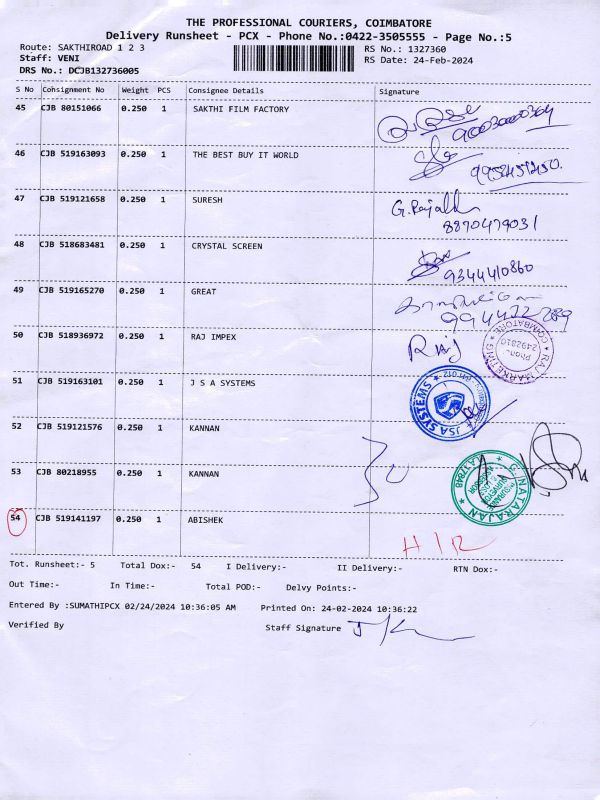 THE PROFESSIONAL COURIERS, COIMBATORE
Delivery Runsheet - PCX - Phone No.:0422-3505555 - Page No.:5
Route: SAKTHIROAD 1 2 3 RS No.: 1327360
Staff: VENI RS Date: 24-Feb-2024
DRS No.: DCJB132736005
S No Consignment No Weight PCS Consignee Details Signature
45 CJB 80151066 0.250 1 SAKTHI FILM FACTORY
46 CJB 519163093 0.250 1 THE BEST BUY IT WORLD
47 CJB 519121658 0.250 1 SURESH
8870479031
48 CJB 518683481 0.250 1 CRYSTAL SCREEN
9344410860
49 CJB 519165270 0.250 1 GREAT
50 CJB 518936972 0.250 1 RAJ IMPEX Raj
RAJ MARKETING COIMBATORE
51 CJB 519163101 0.250 1 J S A SYSTEMS
JSA SYSTEMS
52 CJB 519121576 0.250 1 KANNAN
53 CJB 80218955 0.250 1 KANNAN
G. NATARAJAN
54 CJB 519141197 0.250 1 ABISHEK
Tot. Runsheet:- 5 Total Dox:- 54 I Delivery:- II Delivery:- RTN Dox:-
Out Time:- In Time:- Total POD:- Delvy Points:-
Entered By :SUMATHIPCX 02/24/2024 10:36:05 AM Printed On: 24-02-2024 10:36:22
Verified By Staff Signature